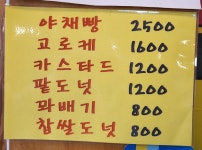 야채빵 2500
고로케 1600
카스타드 1200
팥도넛 1200
꽈배기 800
찹쌀도넛 800